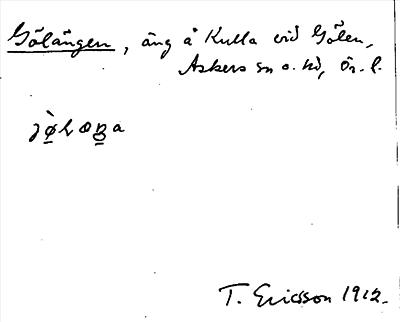 Gölängen, äng å Kulla vid Gölen,
Askers sn o. hd, Ör. l.
T. Ericsson 1912.